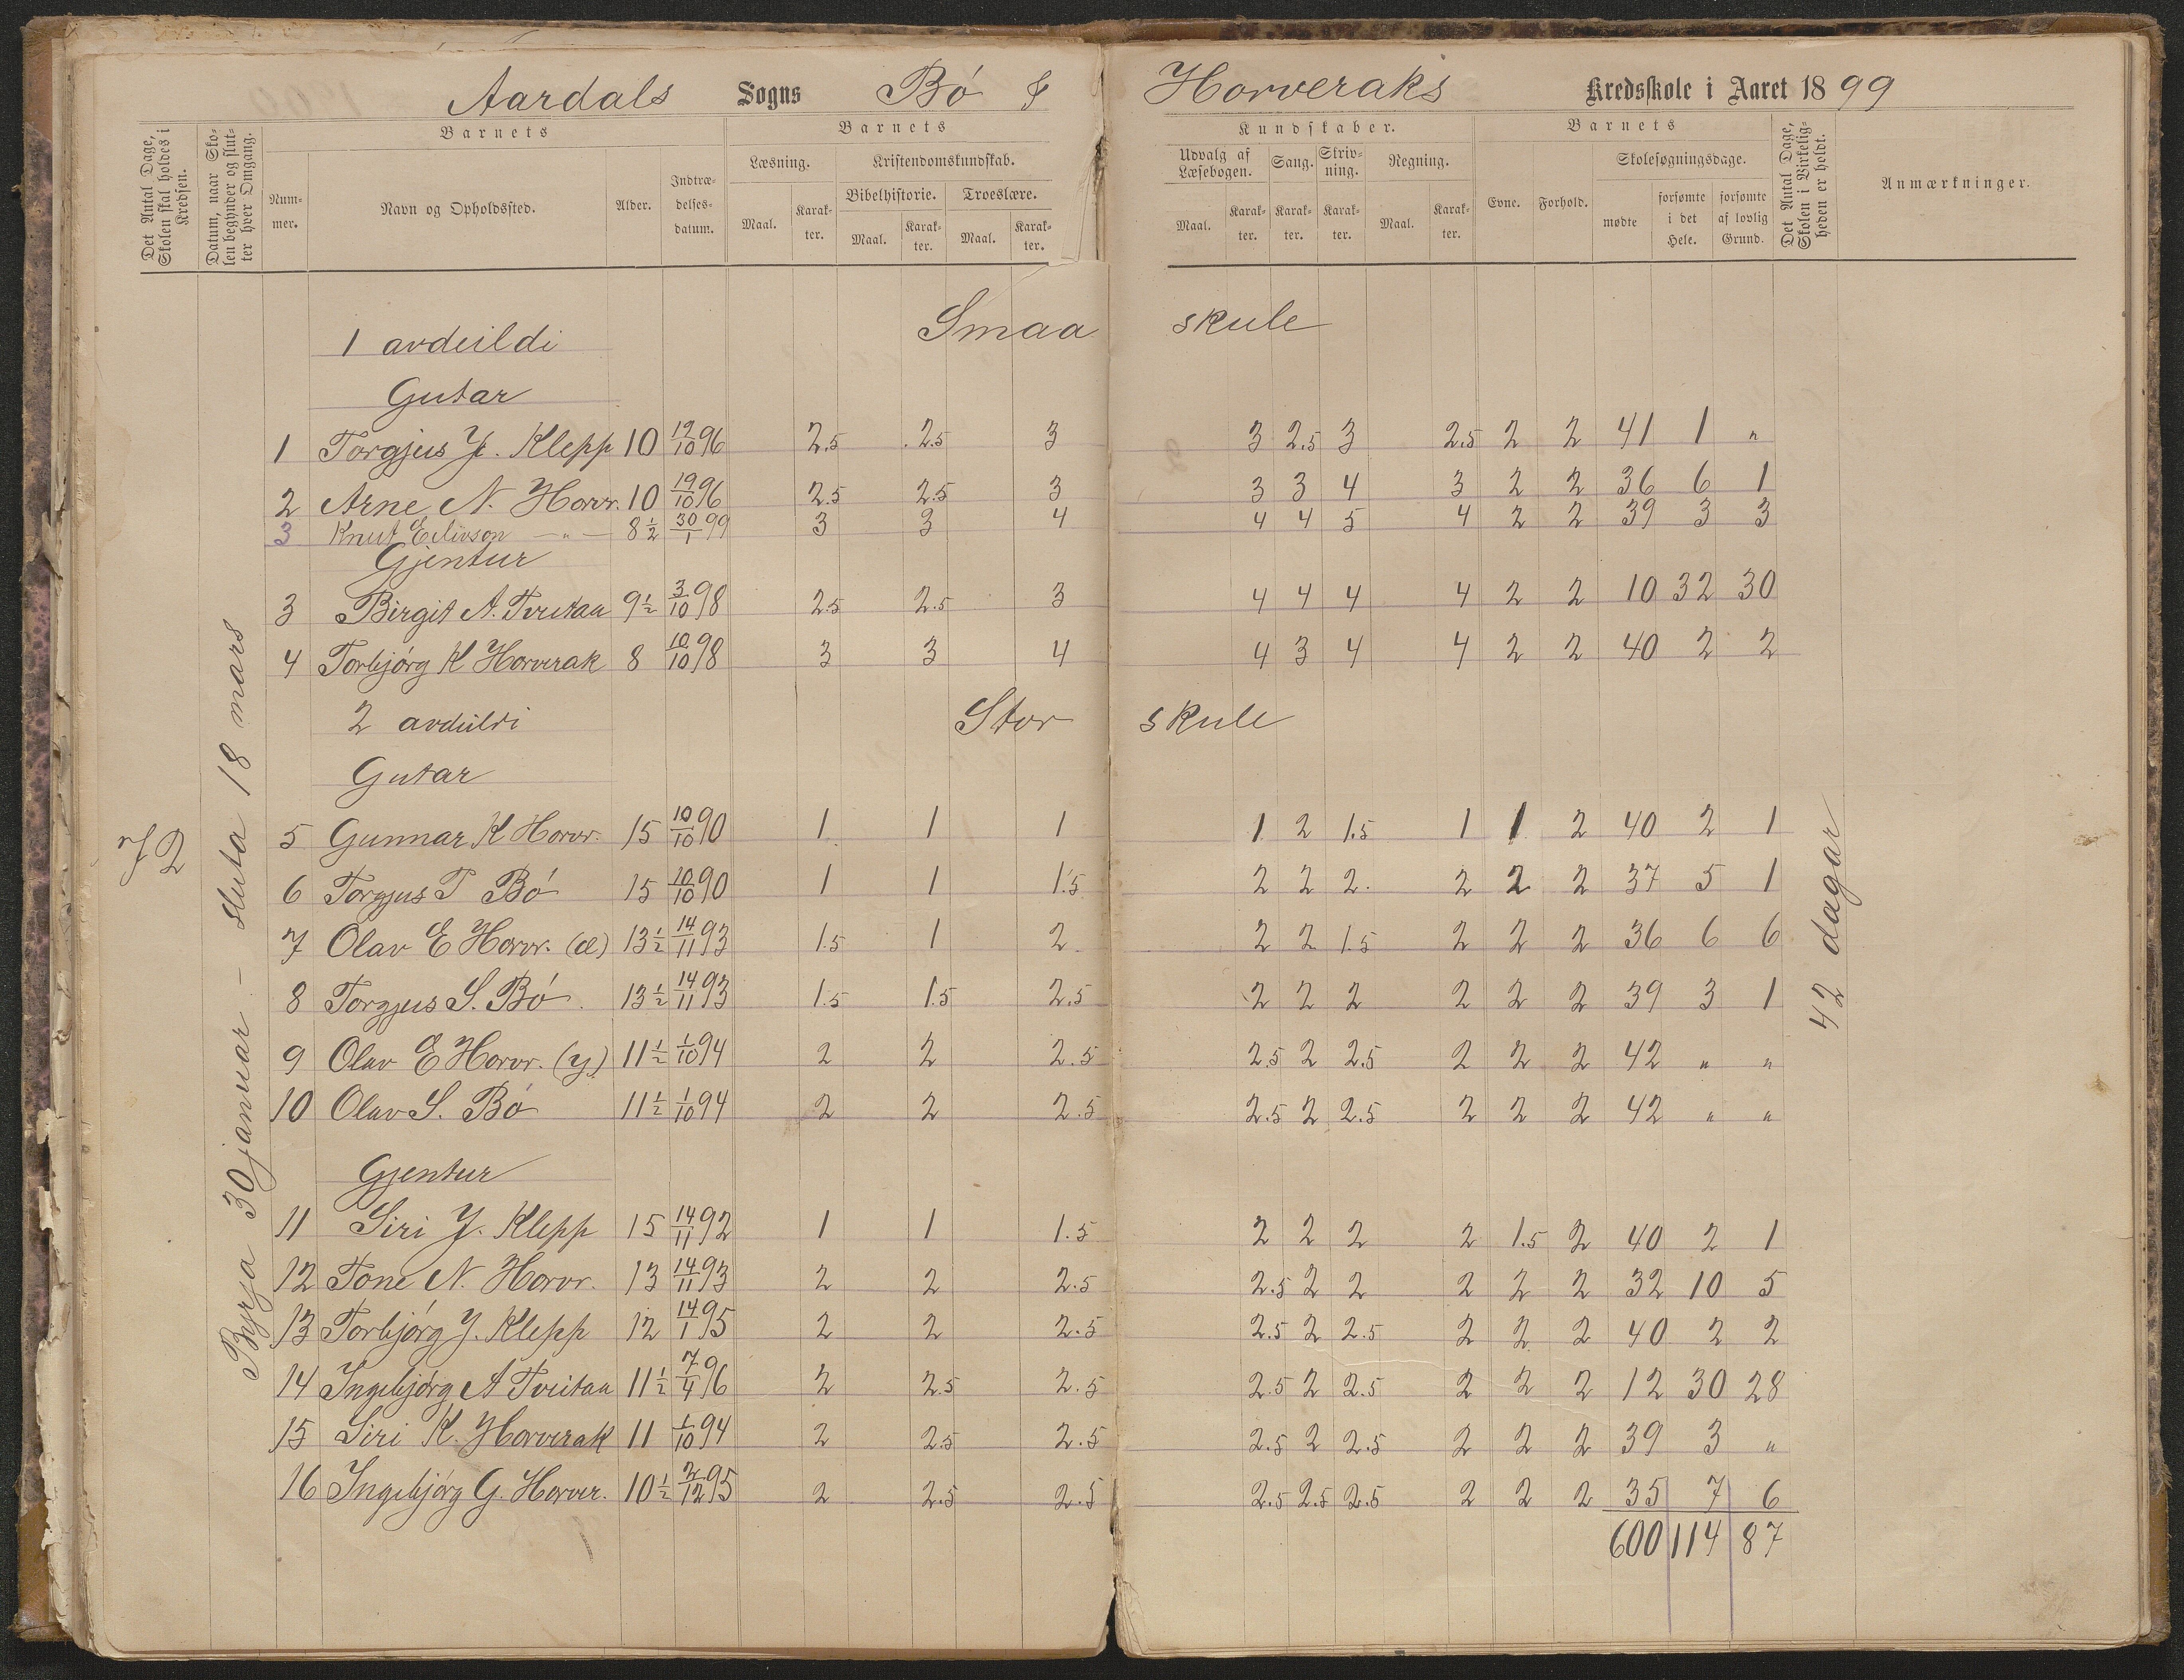 Aardals Sogns Bø & Horveraks Kredsskole i Aaret 1899
Det Antal Dage, Skolen skal holdes i Kredsen.
Datum, naar Skolen begynder og slutter hver Omgang.
Barnets
Nummer.
Navn og Opholdssted.
Alder.
Indtrædelsesdatum.
Barnets
Læsning.
Maal.
Karakter.
Kristendomskundskab.
Bibelhistorie.
Maal.
Karakter.
Troeslære.
Maal.
Karakter.
Kundskaber.
Udvalg af Læsebogen.
Maal.
Karakter.
Sang.
Karakter.
Skrivning.
Karakter.
Regning.
Maal.
Karakter.
Barnets
Evne.
Forhold.
Skolesøgningsdage.
mødte
forsømte i det Hele.
forsømte af lovlig Grund.
Det Antal Dage, Skolen i Virkeligheden er holdt.
Anmærkninger.
72
Byrja 30 januar - sluta 18 mars
42 dagar
1 avdeildi Smaa skule
Gutar
1 Torgjus J. Klepp 10 19/10 96 2.5 2.5 3 3 2.5 3 2.5 2 2 41 1 "
2 Arne N. Horvr. 10 19/10 96 2.5 2.5 3 3 3 4 3 2 2 36 6 1
3 Knut Eilivson — " — 8 1/2 30/1 99 3 3 4 4 4 5 4 2 2 39 3 3
Gjentur
3 Birgit A. Tveitaa 9 1/2 3/10 98 2.5 2.5 3 4 4 4 4 2 2 10 32 30
4 Torbjørg K Horverak 8 10/10 98 3 3 4 4 3 4 4 2 2 40 2 2
2 avdeildi Stor skule
Gutar
5 Gunnar K Horvr. 15 10/10 90 1 1 1 1 2 1.5 1 1 2 40 2 1
6 Torgjus T Bø 15 10/10 90 1 1 1.5 2 2 2. 2 2 2 37 5 1
7 Olav E Horvr. (e) 13 1/2 14/11 93 1.5 1 2 2 2 1.5 2 2 2 36 6 6
8 Torgjus S. Bø 13 1/2 14/11 93 1.5 1.5 2.5 2 2 2 2 2 2 39 3 1
9 Olav E Horvr. (y) 11 1/2 1/10 94 2 2 2.5 2.5 2 2.5 2 2 2 42 " "
10 Olav S. Bø 11 1/2 1/10 94 2 2 2.5 2.5 2 2.5 2 2 2 42 " "
Gjentur
11 Siri J. Klepp 15 14/11 92 1 1 1.5 2 2 2 2 1.5 2 40 2 1
12 Tone N. Horvr. 13 14/11 93 2 2 2.5 2.5 2 2 2 2 2 32 10 5
13 Torbjørg J. Klepp 12 14/1 95 2 2 2.5 2.5 2 2.5 2 2 2 40 2 2
14 Ingebjørg A Tveitaa 11 1/2 7/4 96 2 2.5 2.5 2.5 2 2.5 2 2 2 12 30 28
15 Siri K. Horverak 11 1/10 94 2 2.5 2.5 2.5 2 2.5 2 2 2 39 3 "
16 Ingebjørg G. Horver. 10 1/2 2/12 95 2 2.5 2.5 2.5 2.5 2.5 2 2 2 35 7 6
600 114 87